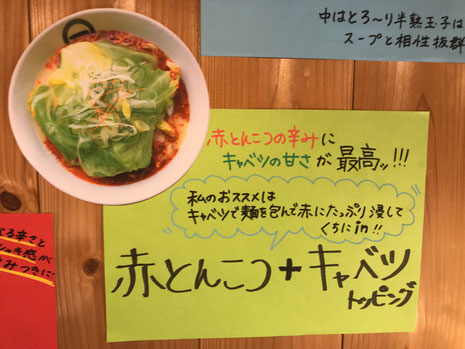 中はとろ～り半熟玉子は
スープと相性抜群
赤とんこつの辛みに
キャベツの甘さが最高ッ!!!
私のおススメは
キャベツで麺を包んで赤にたっぷり浸して
くちにin!!
赤とんこつ+キャベツ
トッピング
る辛さと
キ感が
みつきに!